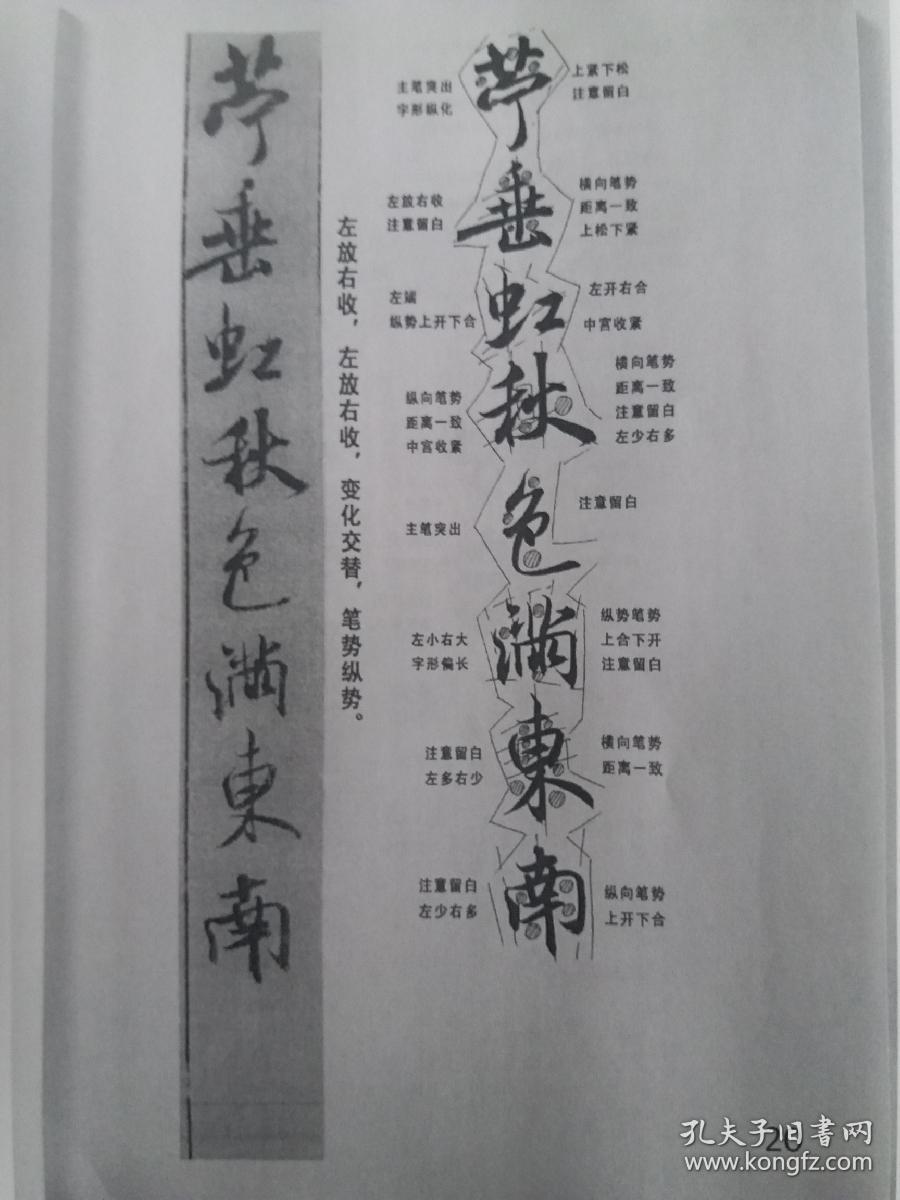 苎垂虹秋色滿東南
左放右收，左放右收，变化交替，笔势纵势。
苎垂虹秋色滿東南
主笔突出
字形纵化
上紧下松
注意留白
左放右收
注意留白
横向笔势
距离一致
上松下紧
左端
纵势上开下合
左开右合
中宫收紧
纵向笔势
距离一致
中宫收紧
横向笔势
距离一致
注意留白
左少右多
主笔突出
注意留白
左小右大
字形偏长
纵势笔势
上合下开
注意留白
注意留白
左多右少
横向笔势
距离一致
注意留白
左少右多
纵向笔势
上开下合
20
孔夫子旧书网
www.kongfz.com